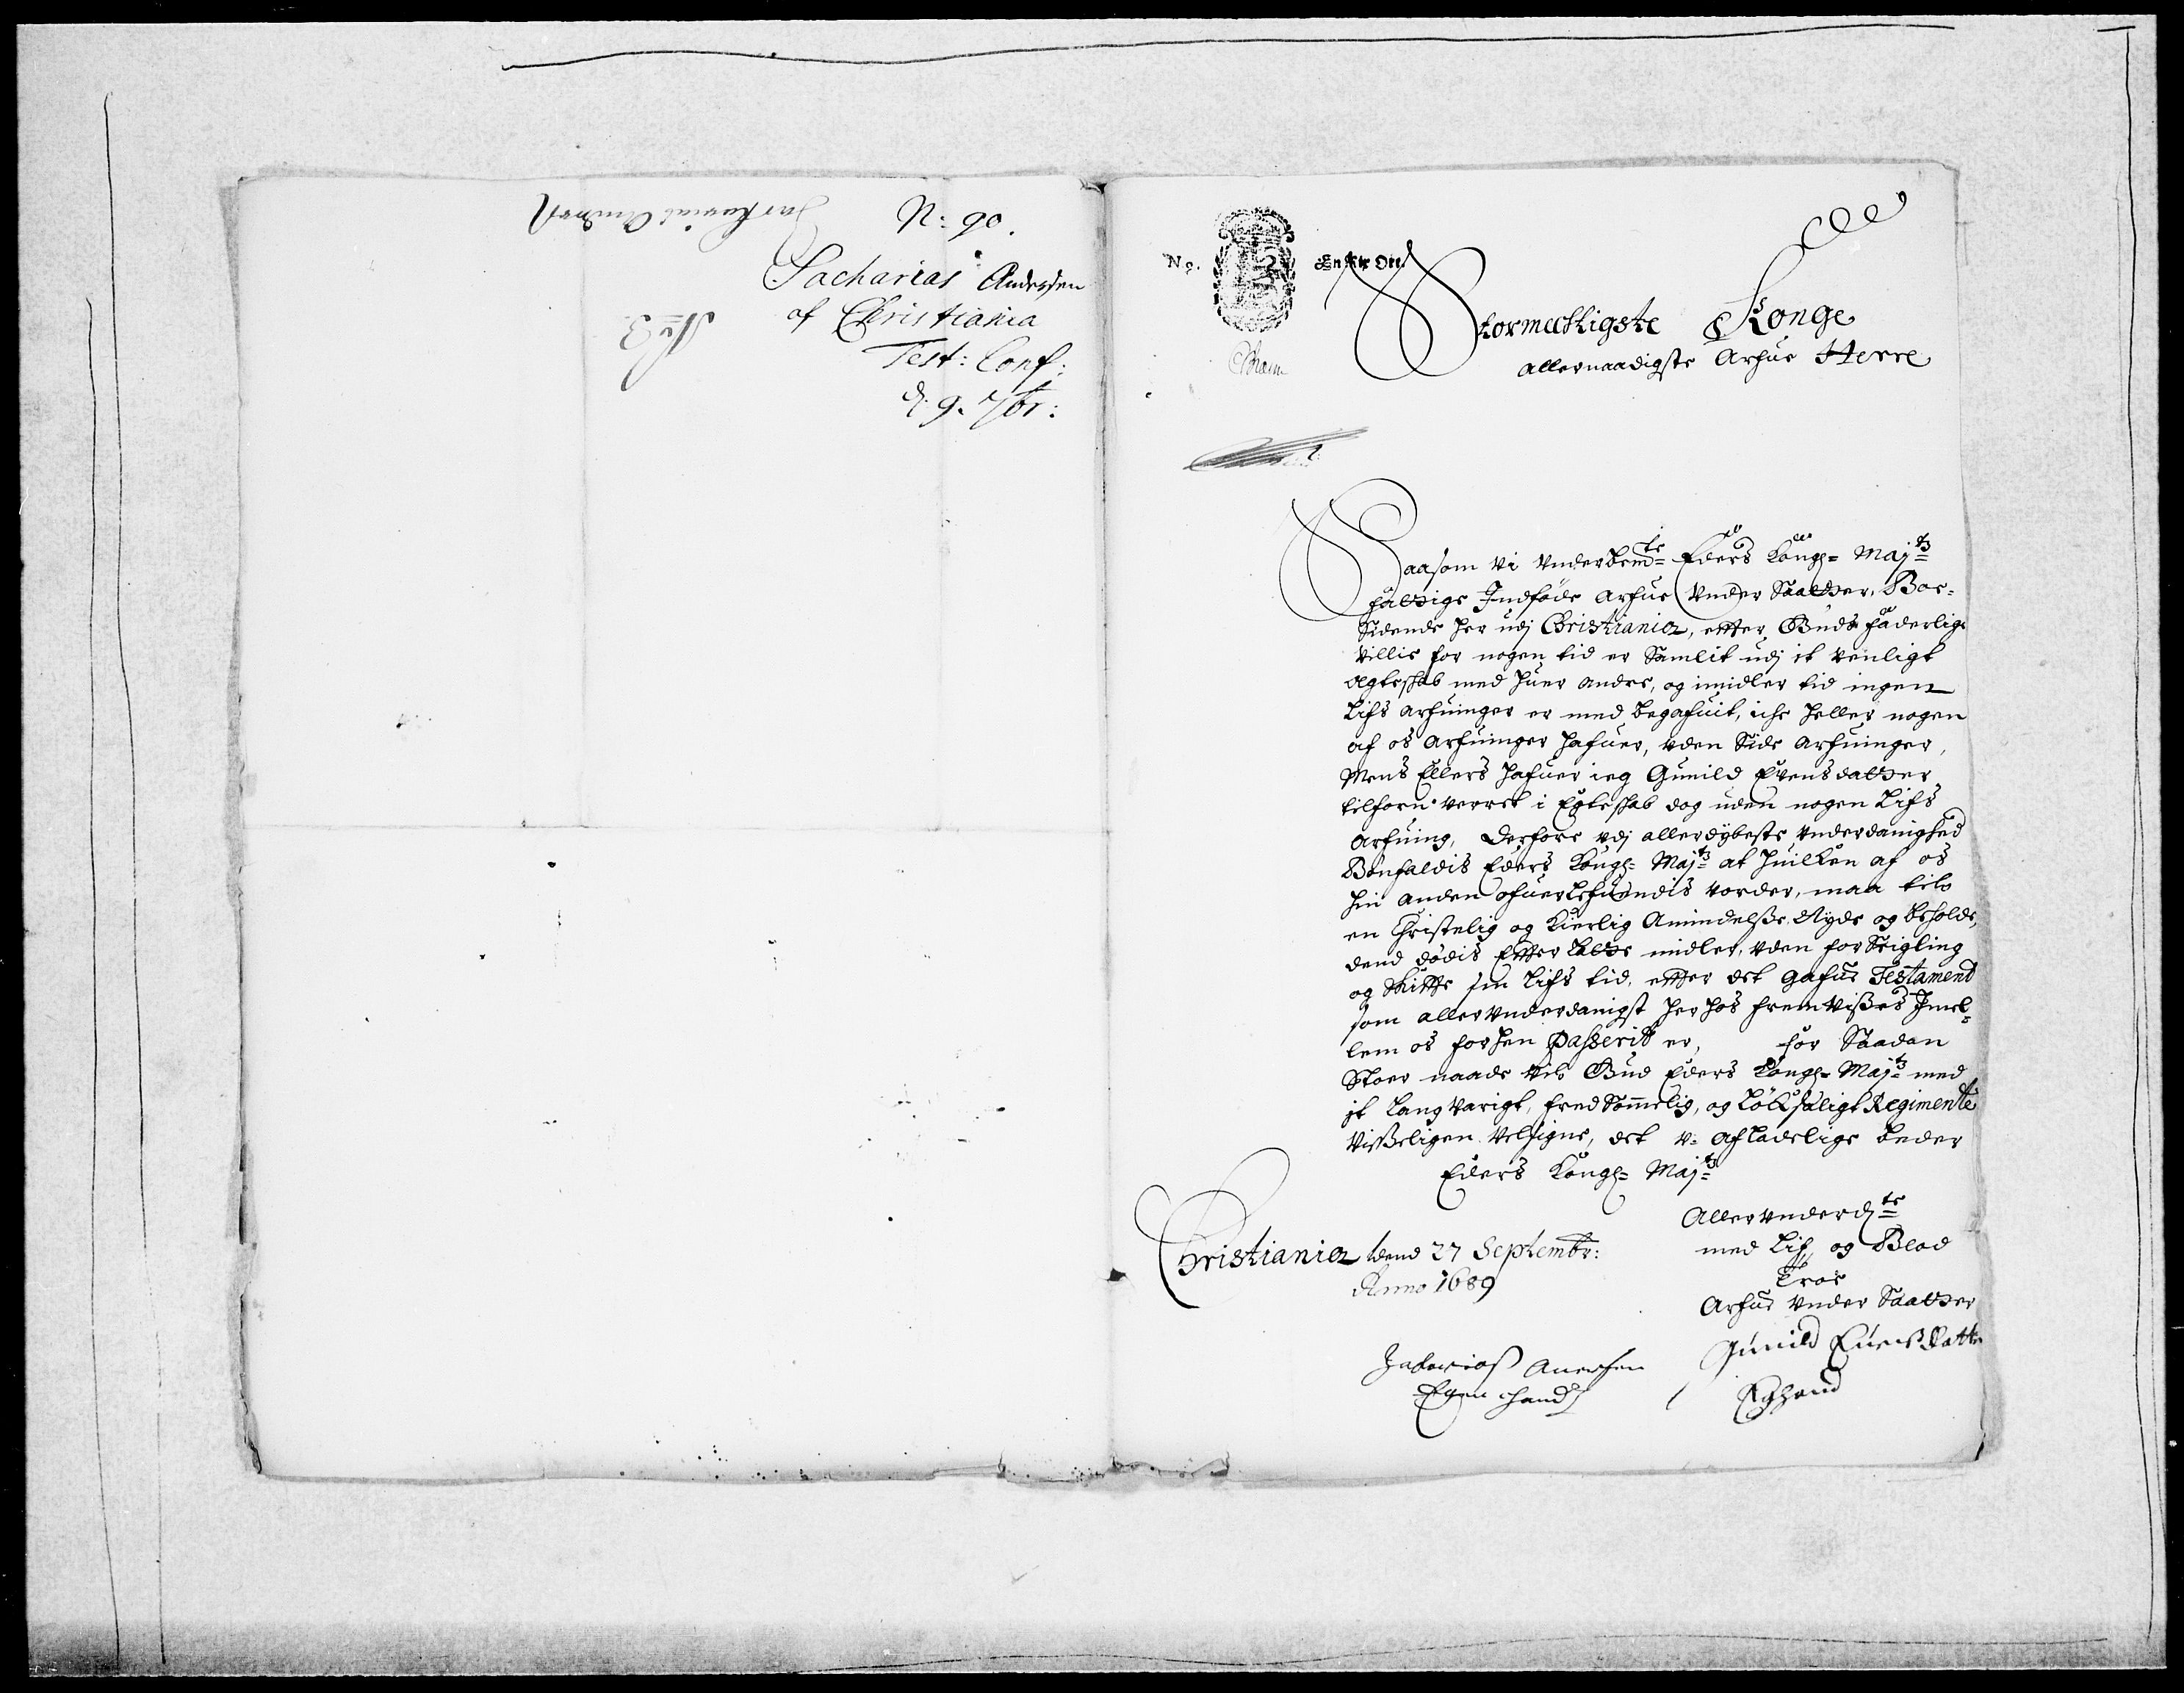 N: 90.
Sacharias Andersen
af Christiania
Test: Conf:
d. 9. 7br:
No 3
No. 2 En ... Ort
Stormectigste Konge
allernaadigste Arfue Herre
Saasom vi underbemte Eders Kongl= Majtz
fattige Indföde Arfue Under Saatter, Boe=
Sidende her udj Christiania, effter Guds faderlige
villie for nogen tid er Samlit udj it venligt
ægteskab med huer andre, og imidler tid ingen
Lifs arfuinger er med begafuit, iche heller nogen
af os arfuinger hafuer, uden Side arfuinger,
Mens Ellers hafuer ieg Gunild Evensdatter
tilforn verret i Egteskab dog uden nogen Lifs
arfuing, Derfore udj allerdybeste underdanighed
Bönfaldis Eders Kongl= Majtz at huilken af os
hin anden ofuerlefuendis vorder, maa till
en Christelig og Kierlig Amindelsse, Nyde og beholde,
dend dödis Effterlatte midler, uden forSeigling
og Skiffte sin Lifs tid, effter det gafue Testament
som allerunderdanigst her hos fremvisses Imel=
lem os forhen Passerit er, for Saadan
Stoer naade vil Gud Eders Kongl= Majtz med
it Langvarigt, fredSommelig, og Löksaligt Regimente
visseligen velsigne, det vi afladelige beder
Eders Kongl= Majtz
Allerunderdte
med Lif og Blod
Troe
Arfue under Saatter
Christiania dend 27 Septembr:
Anno 1689
Zakarias Anersen
Egen Hand
Gunild Euens Datter
Eghand